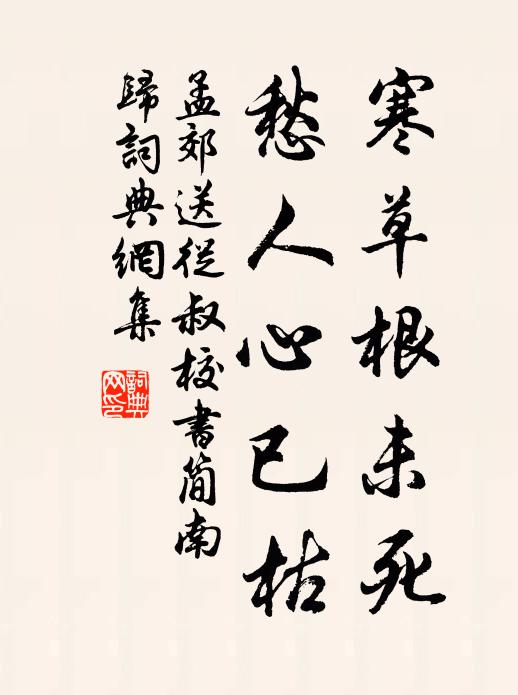 寒草根未死
愁人心已枯
孟郊送從叔校書簡南
歸詞典網集
詞典
网印